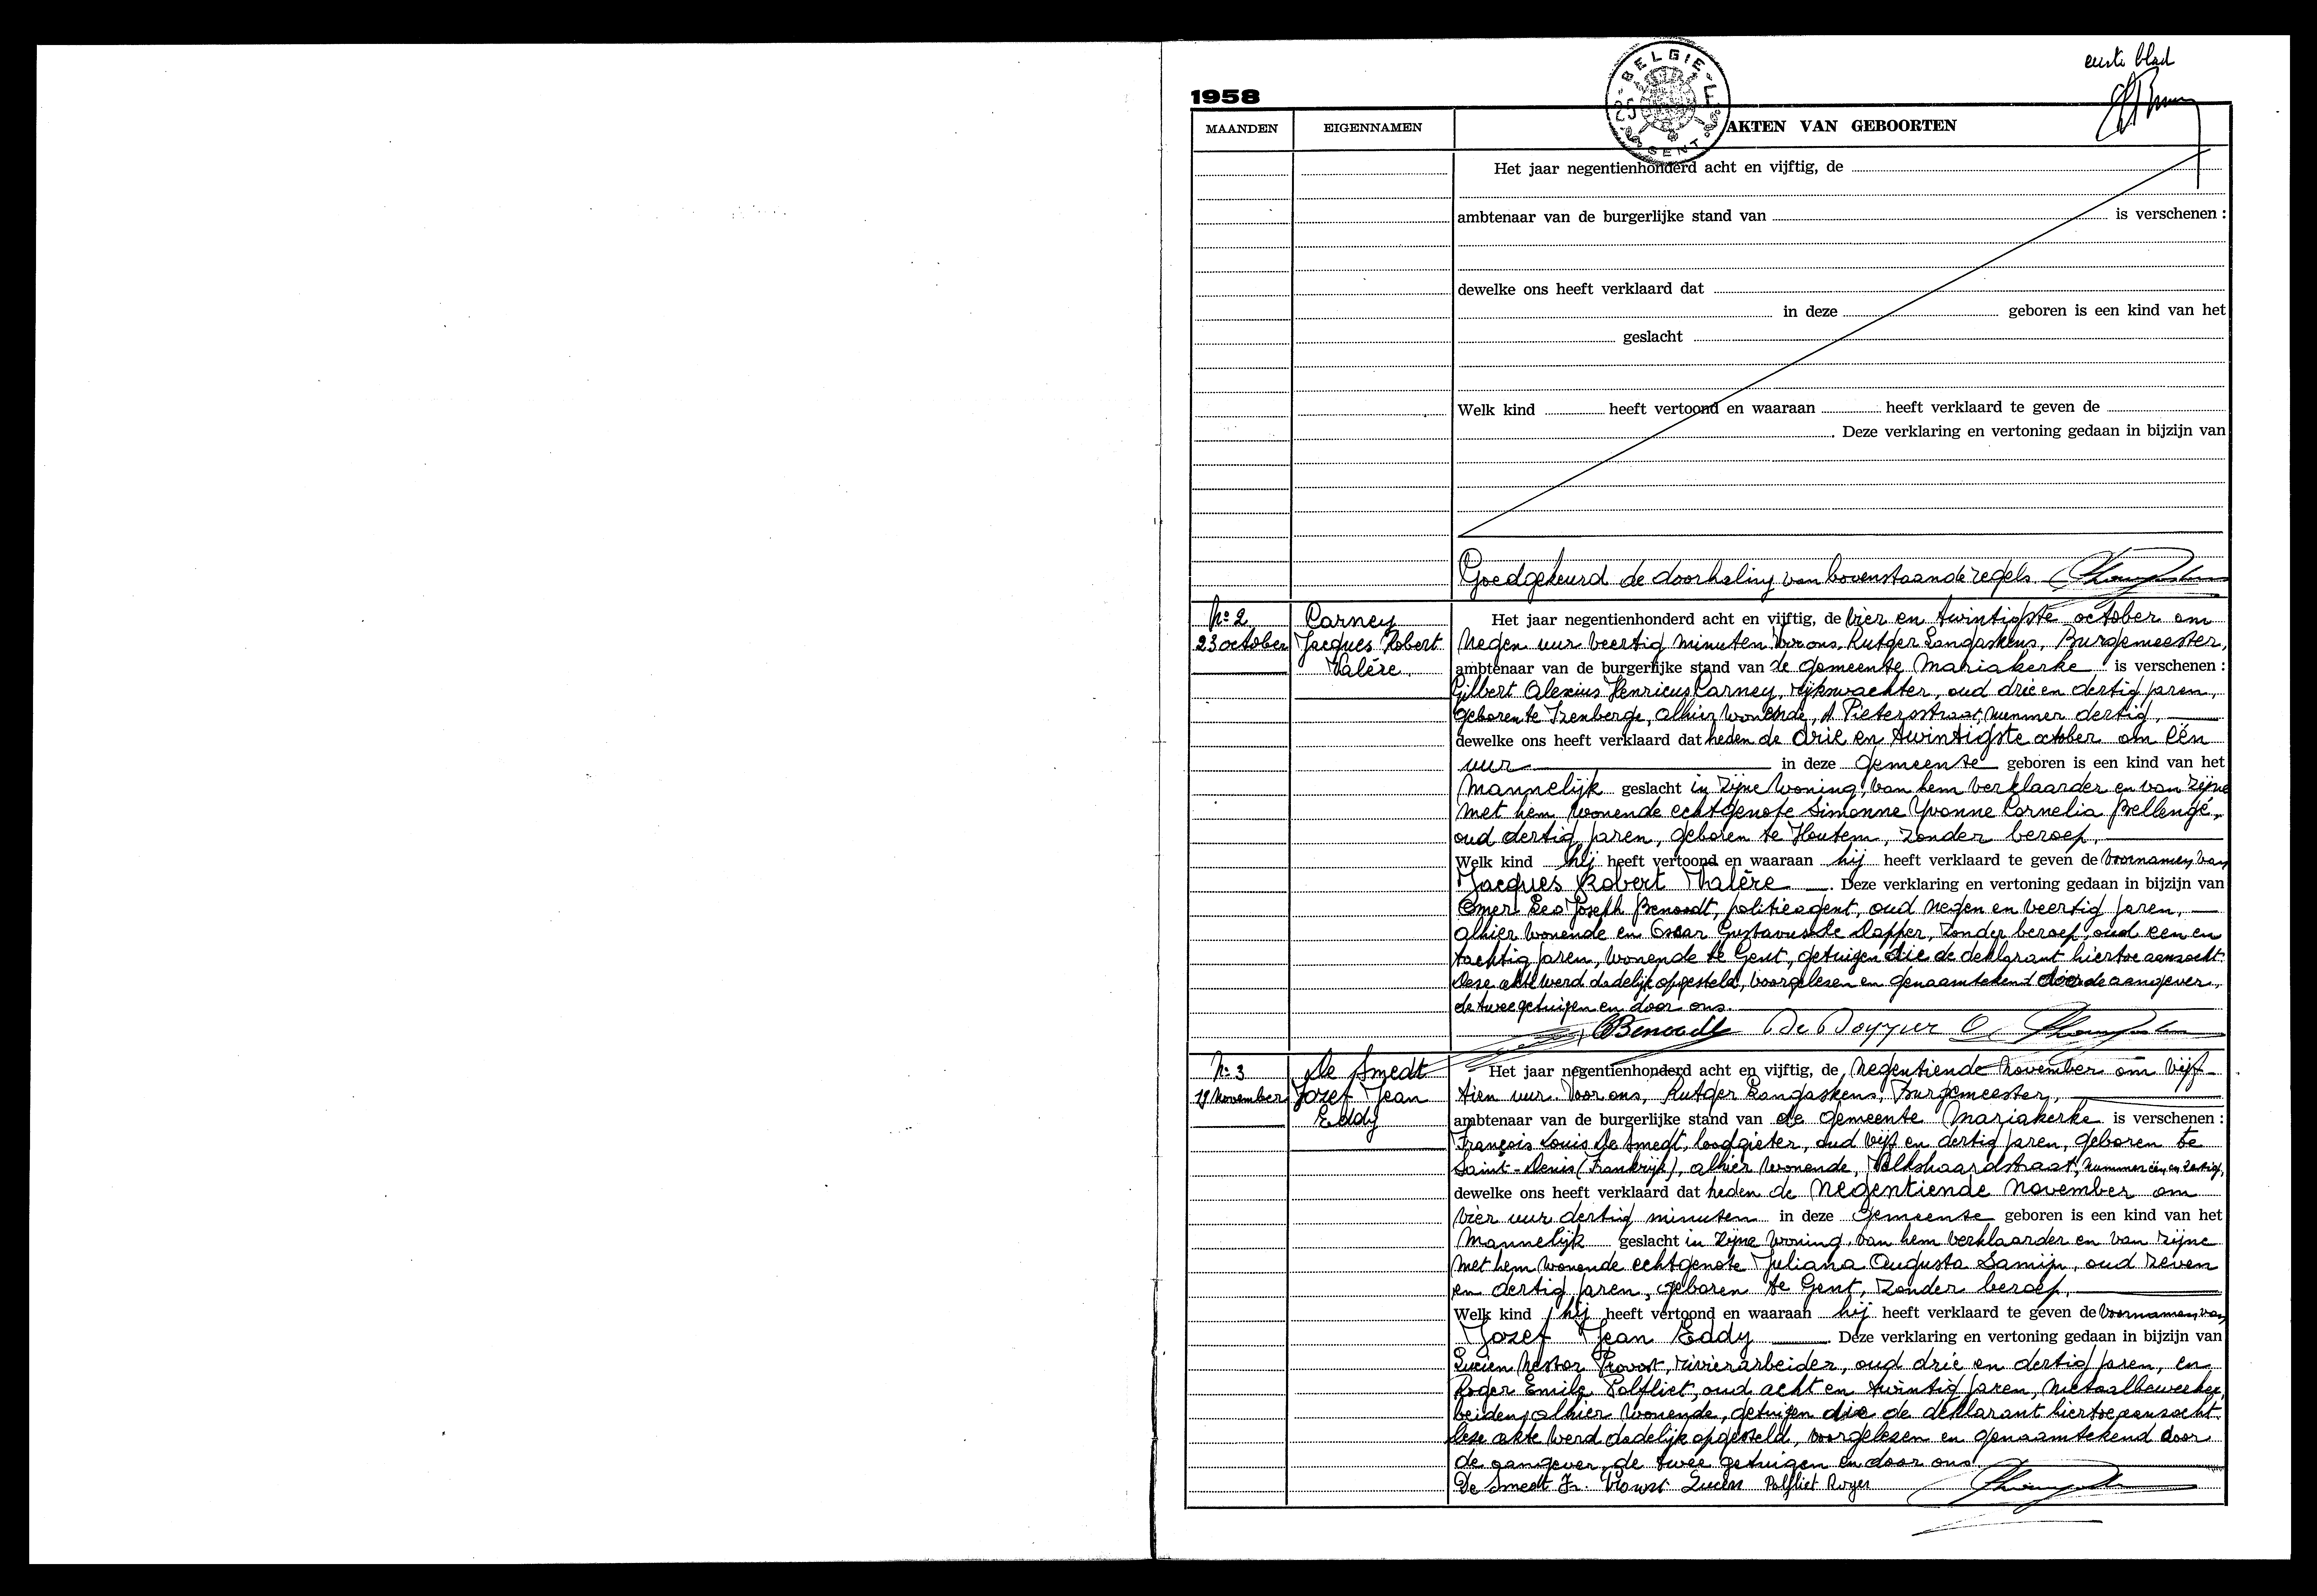 eerste blad
BELGIE
1958
MAANDEN EIGENNAMEN AKTEN VAN GEBOORTEN
Het jaar negentienhonderd acht en vijftig, de
ambtenaar van de burgerlijke stand van is verschenen :
dewelke ons heeft verklaard dat
in deze geboren is een kind van het
geslacht
Welk kind heeft vertoond en waaraan heeft verklaard te geven de
. Deze verklaring en vertoning gedaan in bijzijn van
Goedgekeurd de doorhaling van bovenstaande regels
No 2
23 october
Carney
Jacques Robert
Valère
Het jaar negentienhonderd acht en vijftig, de vier en twintigste october om
negen uur veertig minuten Voor ons, Rutger Langaskens, Burgemeester,
ambtenaar van de burgerlijke stand van de gemeente Mariakerke is verschenen :
Gilbert Alexius Henricus Carney, rijkswachter, oud drie en dertig jaren,
geboren te Izenberge, alhier wonende, St Pietersstraat, nummer dertig,
dewelke ons heeft verklaard dat heden de drie en twintigste october om één
uur in deze gemeente geboren is een kind van het
mannelijk geslacht in zijne woning, van hem verklaarder en van zijne
met hem wonende echtgenote Simonne Yvonne Cornelia Bellengé,
oud dertig jaren, geboren te Houtem, zonder beroep,
Welk kind hij heeft vertoond en waaraan hij heeft verklaard te geven de voornamen van
Jacques Robert Valère . Deze verklaring en vertoning gedaan in bijzijn van
Omer Leo Joseph Benoodt, politieagent, oud negen en veertig jaren,
alhier wonende en Oscar Gustavus zonder beroep, oud een en
tachtig jaren, wonende te Gent, getuigen die de deklarant hiertoe aanzocht.
Deze akte werd dadelijk opgesteld, voorgelezen en genaamtekend door de aangever,
de twee getuigen en door ons.
Benoodt
No 3
19 November
De Smedt
Jozef Jean
Eddy
Het jaar negentienhonderd acht en vijftig, de negentiende November om vijf-
tien uur. Voor ons, Rutger Langaskens, Burgemeester,
ambtenaar van de burgerlijke stand van de gemeente Mariakerke is verschenen :
François Louis De Smedt, loodgieter, oud vijf en dertig jaren, geboren te
Saint-Denis (Frankrijk), alhier wonende, Volkshaardstraat, nummer één en zestig,
dewelke ons heeft verklaard dat heden de negentiende november om
vier uur dertig minuten in deze gemeente geboren is een kind van het
mannelijk geslacht in zijne woning, van hem verklaarder en van zijne
met hem wonende echtgenote Juliana Augusta Samijn, oud zeven
en dertig jaren, geboren te Gent, zonder beroep,
Welk kind hij heeft vertoond en waaraan hij heeft verklaard te geven de voornamen van
Jozef Jean Eddy . Deze verklaring en vertoning gedaan in bijzijn van
Lucien Nestor Provost, rivierarbeider, oud drie en dertig jaren, en
Roger Emile Palfliet, oud acht en twintig jaren, metaalbewerker,
beiden alhier wonende, getuigen die de deklarant hiertoe aanzocht.
Deze akte werd dadelijk opgesteld, voorgelezen en genaamtekend door
de aangever, de twee getuigen en door ons.
De Smedt Fr. Lucien Palfliet Roger